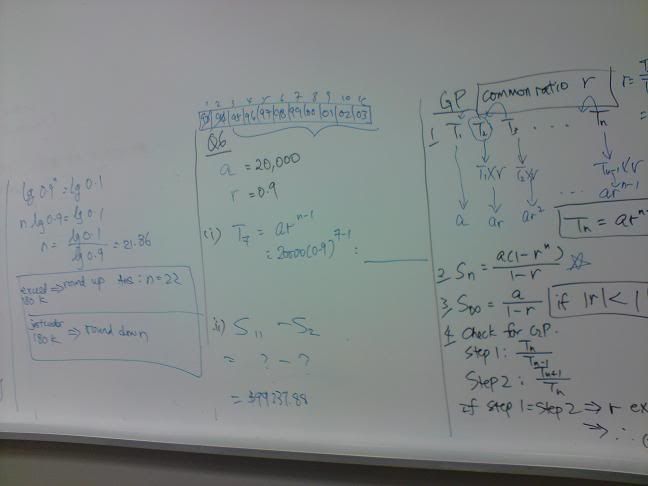 lg 0.9ⁿ = lg 0.1
n lg 0.9 = lg 0.1
n = lg 0.1 / lg 0.9 = 21.86
exceed 180 K ⇒ round up Ans : n = 22
just under 180 K ⇒ round down
1 2 3 4 5 6 7 8 9 10 11
93 94 95 96 97 98 99 00 01 02 03
Q6
a = 20,000
r = 0.9
(i) T₇ = arⁿ⁻¹
= 20000(0.9)⁷⁻¹ =
ii) S₁₁ − S₂
= ? − ?
GP common ratio r
r =
1 T₁ T₂ T₃ . . . . Tₙ
T₁×r T₂×r Tₙ₋₁×r
a ar ar² . . . arⁿ⁻¹
2 Sₙ = a(1−rⁿ) / 1−r
3 S∞ = a / 1−r if |r| < 1
4 Check for GP.
Step 1 : Tₙ / Tₙ₋₁
Step 2 : Tₙ₊₁ / Tₙ
if step 1 = step 2 ⇒ r
⇒ ∴